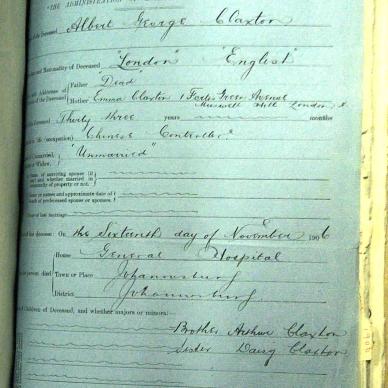 "THE ADMINISTRATION OF
of the Deceased Albert George Claxton
and Nationality of Deceased "London" "English"
and Addresses of Father "Dead"
of the Deceased Mother Emma Claxton 1 Fortis Green Avenue
Muswell Hill London N
Deceased Thirty three years months
(occupation) "Chinese Controller"
"Unmarried"
Name of surviving spouse (if
any) and whether married in
community of property or not.
or names and approximate date of
death of predeceased spouse or spouses.
of last marriage
decease: On the Sixteenth day of November 1906
House General Hospital
person died Town or Place Johannesburg
District Johannesburg
Children of Deceased, and whether majors or minors:—
Brother Arthur Claxton
Sister Daisy Claxton